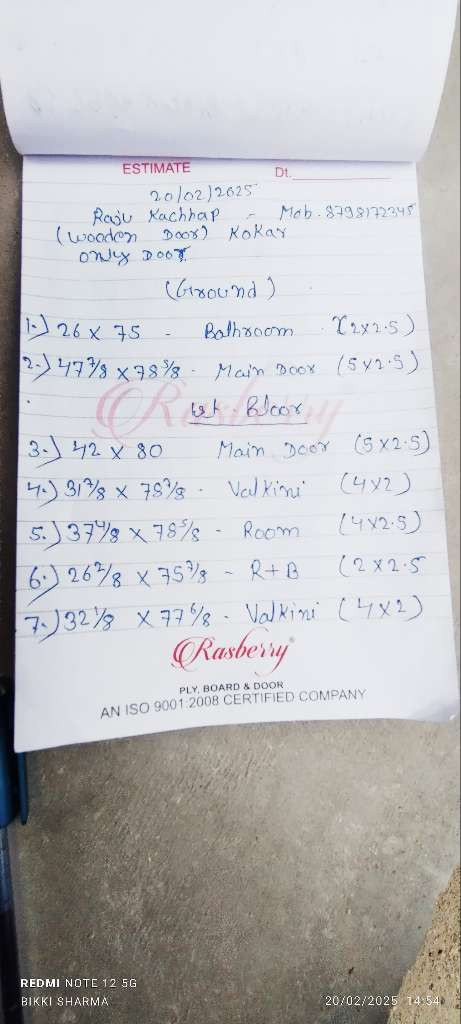 ESTIMATE Dt.
20/02/2025
Raju Kachhap - Mob. 8798172345
(Wooden Door) Kokar
only Door
(Ground)
1.) 26 x 75 - Bathroom (2x2.5)
2.) 47 7/8 x 78 5/8 - Main Door (5x2.5)
Rasberry
1st. Floor
3.) 42 x 80 Main Door (5x2.5)
4.) 31 7/8 x 78 7/8 - Valkini (4x2)
5.) 37 4/8 x 78 5/8 - Room (4x2.5)
6.) 26 2/8 x 75 7/8 - R+B (2x2.5
7.) 32 1/8 x 77 6/8 - Valkini (4x2)
Rasberry®
PLY, BOARD & DOOR
AN ISO 9001:2008 CERTIFIED COMPANY
REDMI NOTE 12 5G
BIKKI SHARMA 20/02/2025 14:54